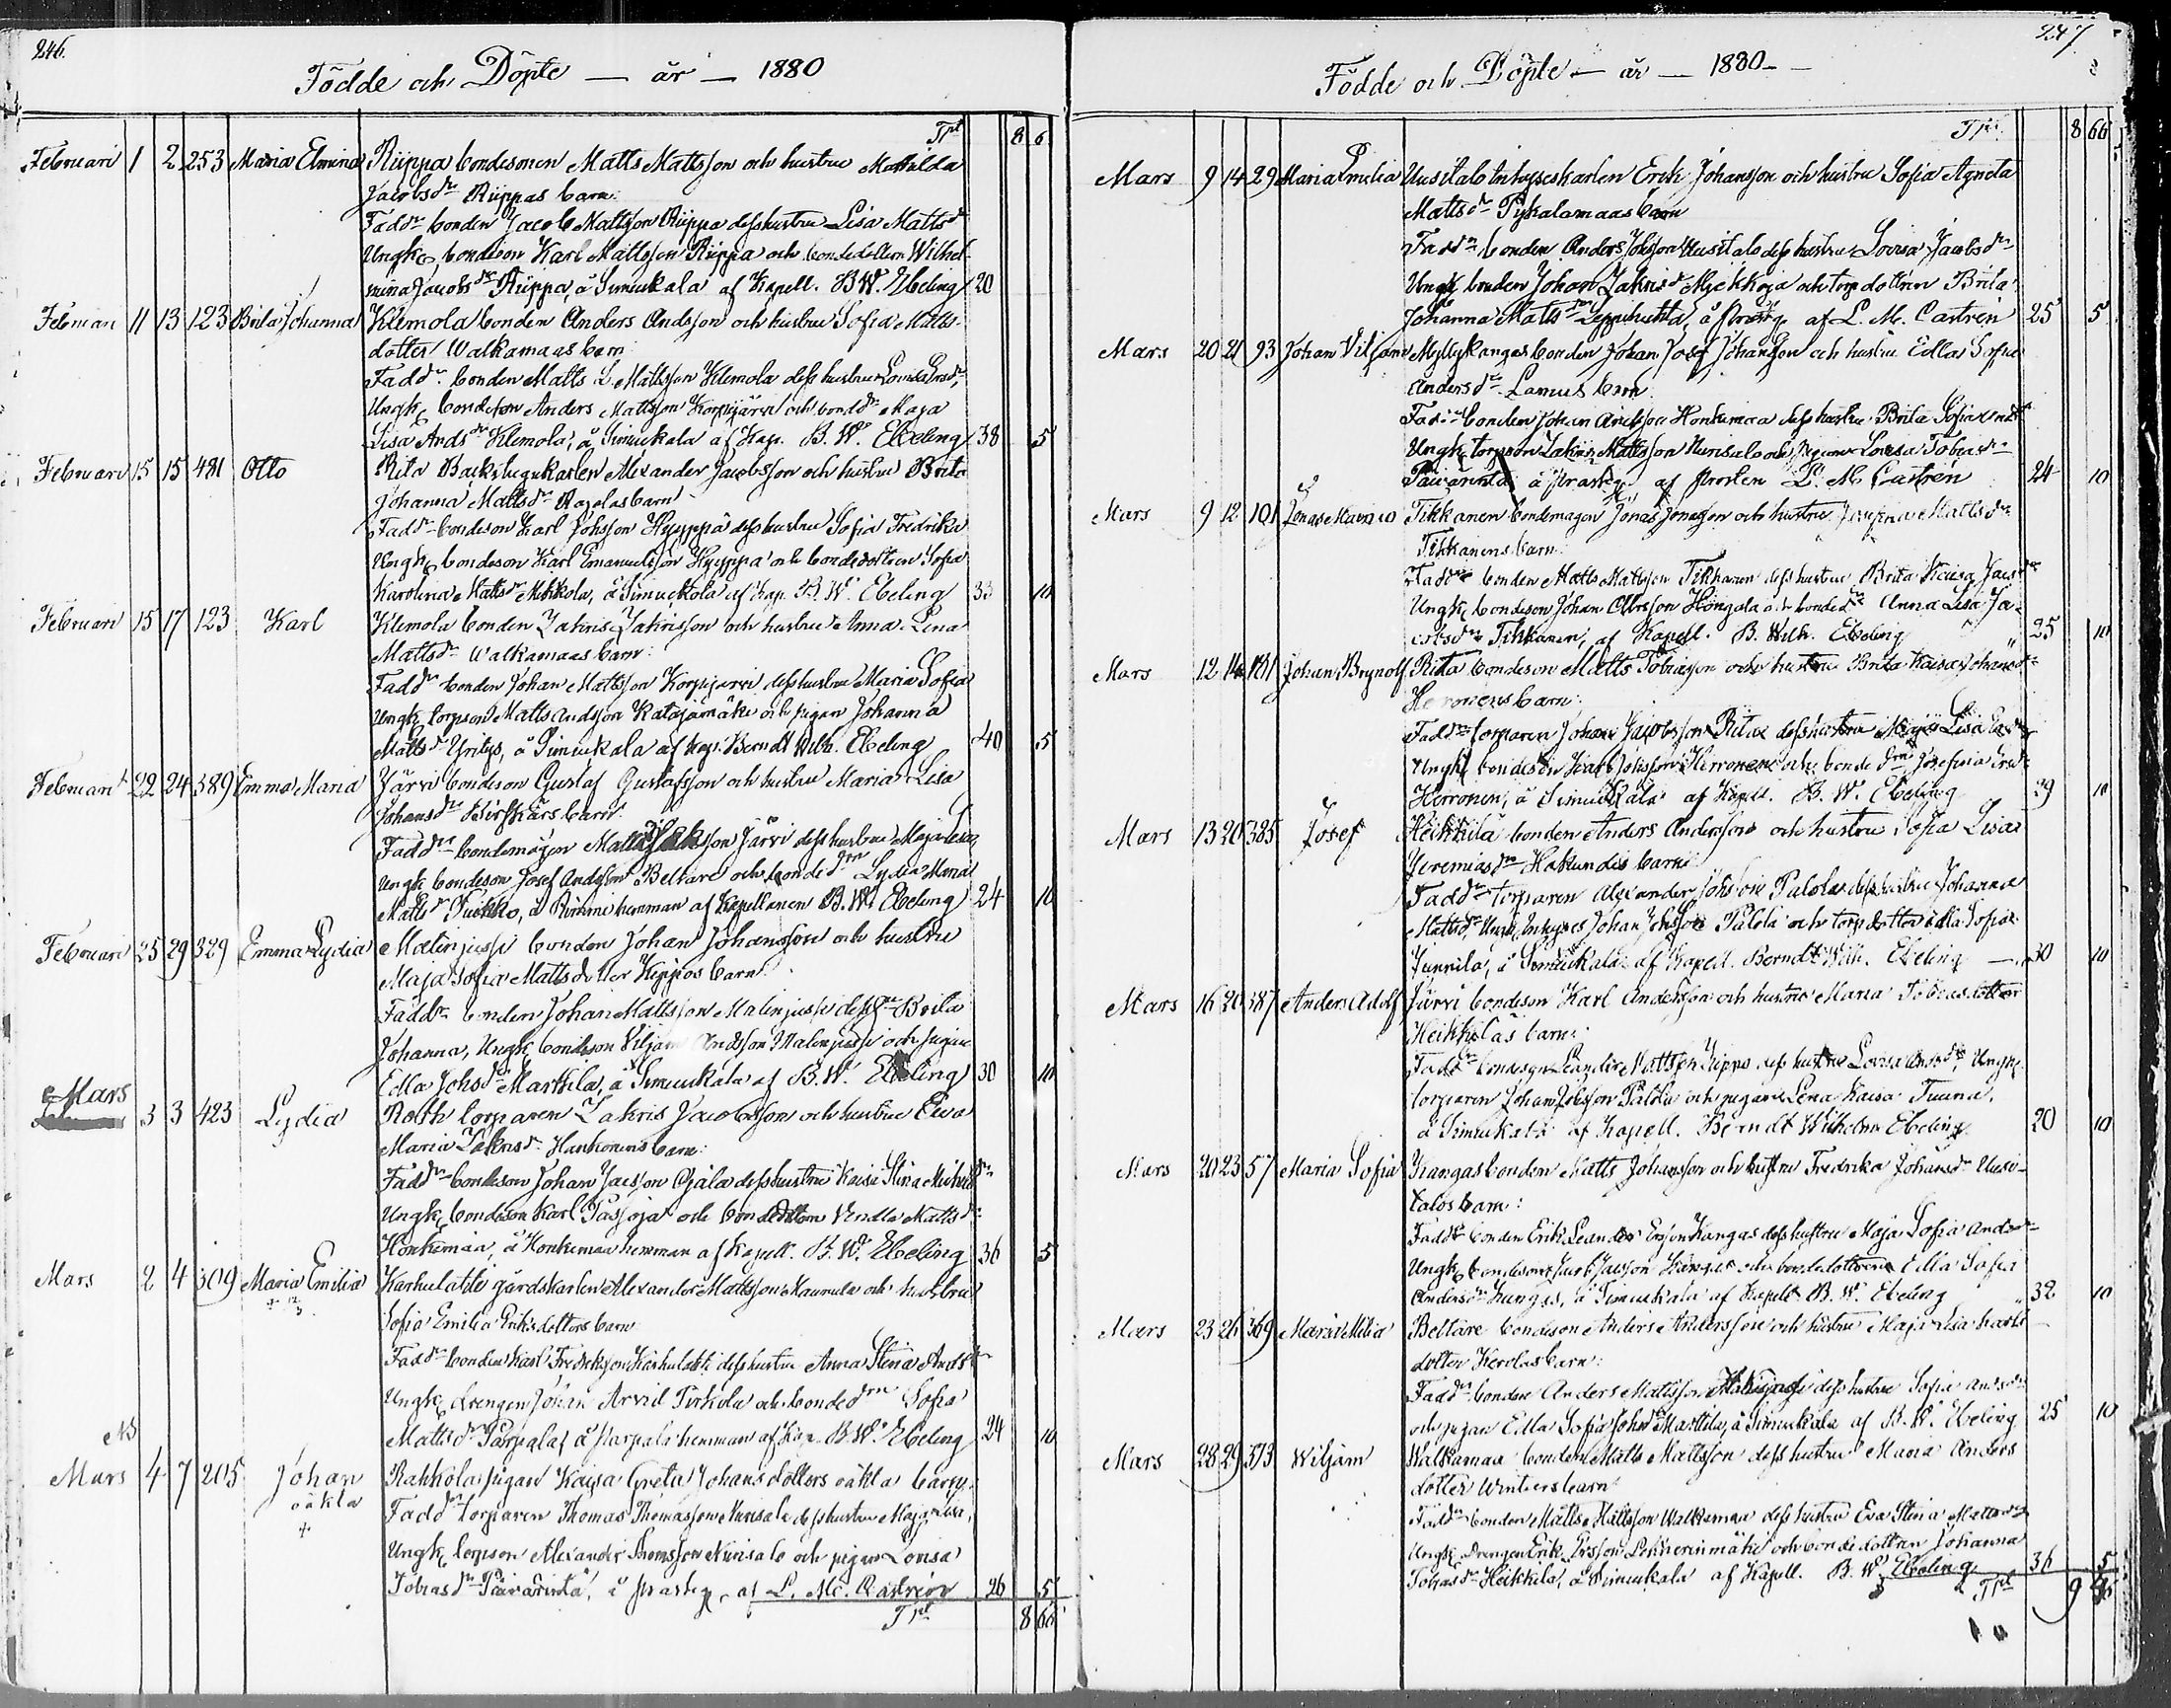 246.
Födde och Döpte — år — 1880
Tpt 8 6
Februari 1 2 253 Maria Elmina Riippa bondesonen Matts Mattsson och hustru Mathilda
Jacobsdr Riippas barn:
Faddr bonden Jacob Mattsson Riippa dess hustru Lisa Mattsd
Ungk. bondeson Karl Mattsson Riippa och bondedottern Wilhel-
mina Jacobsdr Riippa, å Simuckala af Kapell. B. W. Ebeling 20
Februari 11 13 123 Brita Johanna Klemola bonden Anders Andsson och hustru Sofia Matts-
dotter Walkamaas barn
Faddr bonden Matts Mattsson Klemola dess hustru Lovisa
Ungk. bondeson Anders Mattsson Korpijärvi och bonddr Maja
Lisa Andsdr Klemola, å Simuckala af Kap. B. W. Ebeling 38 5
Februari 15 15 481 Otto Rita Backstugukarlen Alexander Jacobsson och hustru Brita
Johanna Mattsdr barn
Faddr bondeson Karl Johsson Hyyppä dess hustru Sofia Fredrika
Ungk. bondeson Karl Emanuelsson Hyyppä och bondedottern Sofia
Karolina Mattsdr Mikkola, å Simuckala af Kap. B. W. Ebeling 33 10
Februari 15 17 123 Karl Klemola bonden Zakris Zakrisson och hustru Anna Lena
Mattsdr Walkamaas barn:
Faddr bonden Johan Mattsson Korpijärvi dess hustru Maria Sofia
Ungk. torpson Matts Andsson Katajamäki och pigan Johanna
Mattsdr Yritys, å Simuckala af Kap. Berndt Wilh. Ebeling 40 5
Februari 22 24 389 Emma Maria Järvi bondeson Gustaf Gustafsson och hustru Maria Lisa
Johansdr barn
Faddr bondemågen Järvi dess hustru Maja Lisa,
Ungk. bondeson Josef Andsson Beltare och bondedrn Lydia Maria
Mattsdr, å hemman af Kapellanen B. W. Ebeling 24 10
Februari 25 29 329 Emma Lydia Malinjussi bonden Johan Johansson och hustru
Maja Sofia Mattsdotter Keppos barn
Faddr bonden Johan Mattsson Malinjussi Brita
Johanna, Ungk. bondeson Viljam Andsson Malinjussi och pigan
Edla Johsdr Marttila, å Simuckala af B. W. Ebeling 30 10
Mars 3 3 423 Lydia Roth torparen Zakris Jacobsson och hustru Eva
Maria Zakrisdr Hankonens barn:
Faddr bondeson Johan Jacsson Ojala dess hustru Kaisa Stina
Ungk. bondeson Karl Passoja och bondedottern Vendla Mattsdr
Honkimaa, å Honkimaa hemman af Kapell. B. W. Ebeling 36 5
Mars 2 4 309 Maria Emilia Karhulahti gårdskarlen Alexander Mattsson Kaunula och hustru
Sofia Emilia Eriksdotters barn
Faddr bonden Karl Fredriksson Karhulahti dess hustru Anna Stina Andsdr
Ungk. drengen Johan Arvid Tirkola och bondedrn Sofia
Mattsdr Parpala, å Parpala hemman af Kap. B. W. Ebeling 24 10
Mars 4 7 205 Johan Rahkola pigan Kaisa Greta Johansdotters oäkta barn
oäkta Faddr torparen Thomas Thomasson Nurisalo dess hustru Maja Lisa,
+ Ungk. torpson Alexander Thomsson Nurisalo och pigan Lovisa
Tobiasdr Päivärinta, å prästg. af L. M. Castrén 26 5
Tpt 8 66
247
Födde och Döpte — år — 1880
Tpt 8 66
Mars 9 14 29 Maria Emelia Uusitalo Inhyseskarlen Erik Johansson och hustru Sofia Agneta
Mattsdr Pykalamaas barn
Faddr bonden Anders Johsson Uusitalo dess hustru Lovisa Jacobsdr
Ungk. bonden Johan Zakrisd och torpdottren Brita
Johanna Mattsdr, å prästg. af L. M. Castrén 25 5
Mars 20 21 93 Johan Viljam Myllykangas bonden Johan Josef Johansson och hustru Edla Sofia
Andersdr Lamus barn
Faddr bonden Johan Andsson Honkimaa dess hustru Brita Sofia
Ungk. torpson Zakris Mattsson Nurisalo och pigan Lovisa Tobiasdr
Päivärinta å prästg. af Prosten L. M. Castrén 24 10
Mars 9 12 101 Jonas Tikkanen bondemågen Jonas Jonasson och hustru Mattsdr
Tikkanens barn
Faddr bonden Matts Mattsson Tikkanen dess hustru Brita Kaisa
Ungk. bondeson Johan Höngala och bondedr Anna Lisa Ja-
cobsdr Tikkanen, af Kapell. B. Wilh. Ebeling 25 10
Mars 12 14 181 Johan Brynolf Rita bondeson Matts Tobiasson och hustru Brita Kaisa Johansdr
Herronens barn:
Faddr torparen Johan Jacobsson Rita dess hustru Maja Lisa
Ungk. bondeson Karl Johsson Herronen och bondedrn Josefina
Herronen, å Simuckala af Kapell. B. W. Ebeling 39 10
Mars 13 20 385 Josef Heikkilä bonden Anders Andersson och hustru Sofia Lisa
Jeremiasdr barn
Faddr torparen Alexander Johsson Palola dess hustru Johanna
Mattsdr, Ungk. Inhyses Johan Johsson Palola och torpdotter Edla Sofia
Junnila, å Simuckala af Kapell. Berndt Wilh. Ebeling — 30 10
Mars 16 20 387 Anders Adolf Järvi bondeson Karl Andersson och hustru Maria Tobiasdotter
Heikkilas barn:
Faddr bondeson Leander Mattson dess hustru Lovisa Andsdr, Ungk.
torparen Johan Johsson Palola och pigan Lena Kaisa
å Simuckala af Kapell. Berndt Wilhelm Ebeling 20 10
Mars 20 23 57 Maria Sofia Kangas bonden Matts Johansson och hustru Fredrika Johansdr Uusi-
talos barn:
Faddr bonden Erik Leander Ersson Kangas dess hustru Maja Sofia Andsdr
Ungk. bondeson Jacsson Kangas och bondedottren Edla Sofia
Andersdr Kangas, å Simuckala af Kapell B. W. Ebeling 32 10
Mars 23 26 369 Maria Milia Beltare bondeson Anders Andersson och hustru Maja Lisa Karls
dotter Kerolas barn:
Faddr bonden Anders Mattsson dess hustru Sofia Andsdr
och pigan Edla Sofia Johsdr Marttila, å Simuckala af B. W. Ebeling 25 10
Mars 28 29 373 Wiljam Walkamaa bonden Matts Mattsson dess hustru Maria Anders
dotter Winters barn
Faddr bonden Matts Mattsson Walkamaa dess hustru Eva Stina
Ungk. Drengen Erik Ersson och bondedottren Johanna
Tobiasdr Heikkila, å Simuckala af Kapell. B. W. Ebeling 36 5
Tpt 9